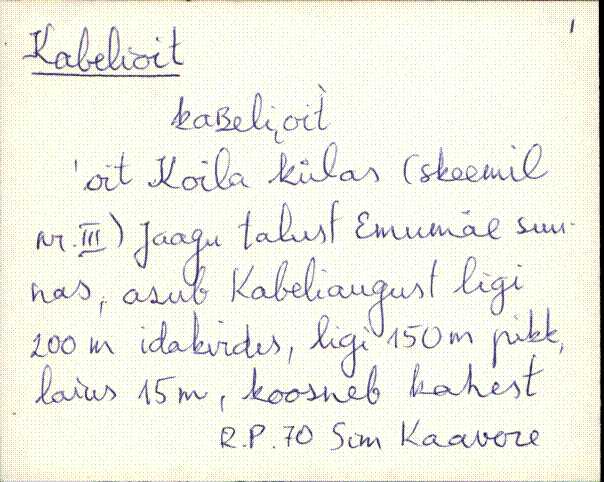 1
Kabelioit
kaʙeli,oit̀
'oit Koila külas (skeemil
nr. III) Jaagu talust Emumäe suu-
nas, asub Kabeliaugust ligi
200 m idakirdes, ligi 150 m pikk,
laius 15 m, koosneb kahest
R.P. 70 Sim Kaavere